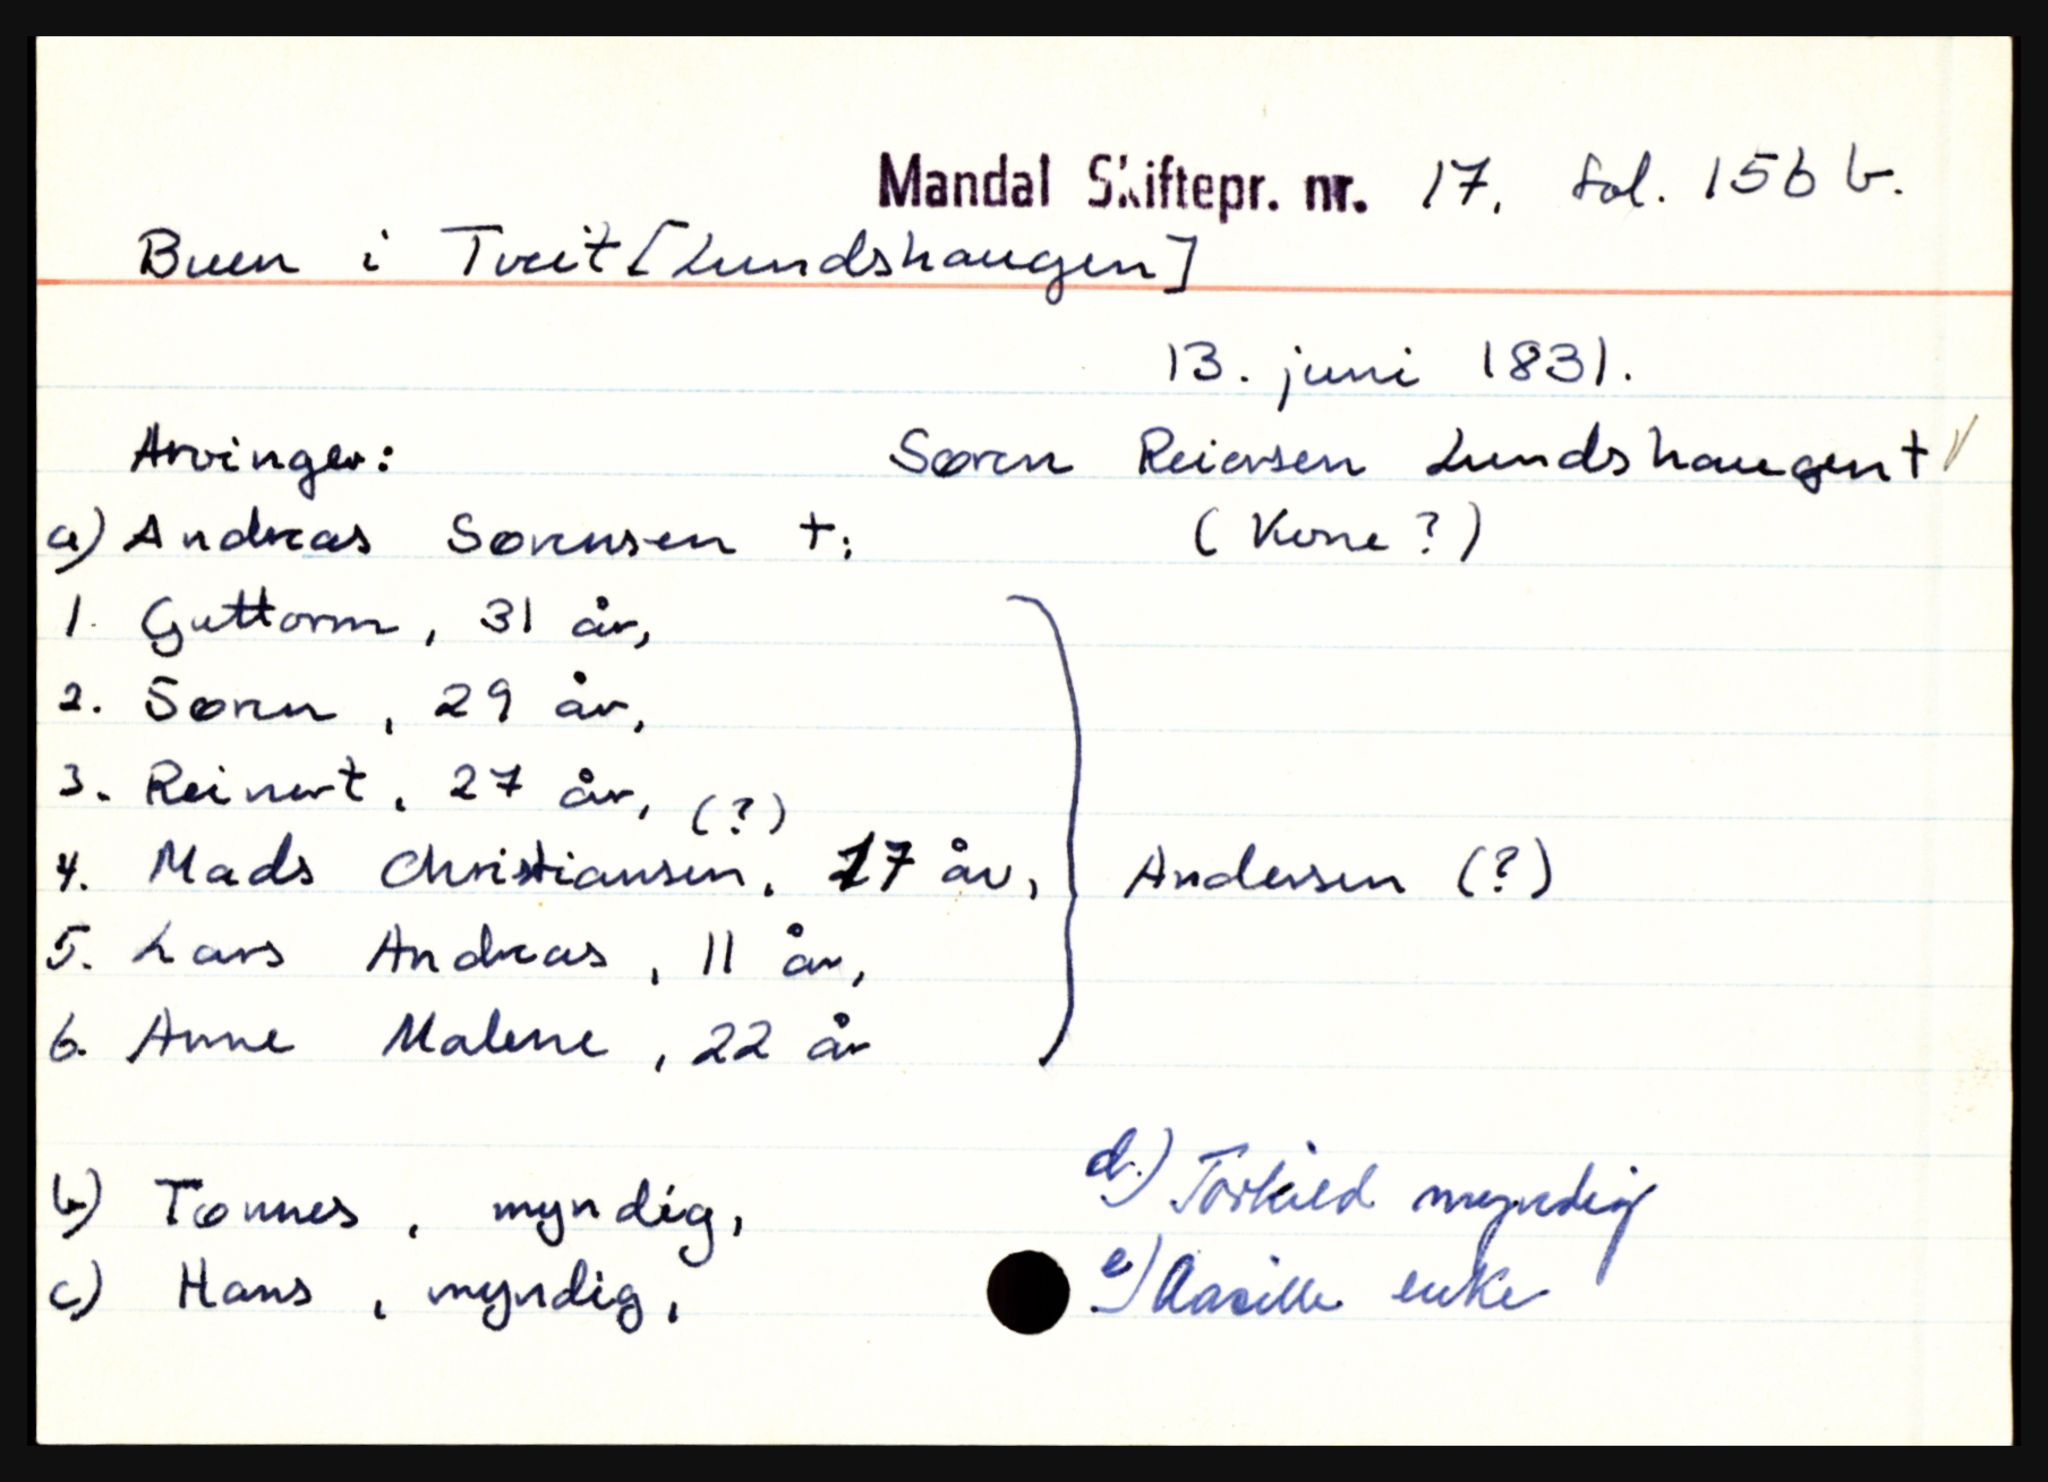 Mandal Skiftepr. nr. 17, fol. 156 b.
Buen i Tveit [Lundshaugen]
13. juni 1831.
Arvinger:
Søren Reiersen Lundshaugen +
(Kone?)
a) Andreas Sørensen +:
1. Guttorm, 31 år,
2. Søren, 29 år,
3. Reinert, 27 år, (?)
4. Mads Christiansen, 17 år,
5. Lars Andreas, 11 år,
6. Anne Malene, 22 år
Andersen (?)
b) Tønnes, myndig,
c) Hans, myndig,
d.) Torkild myndig
e) Aasille enke